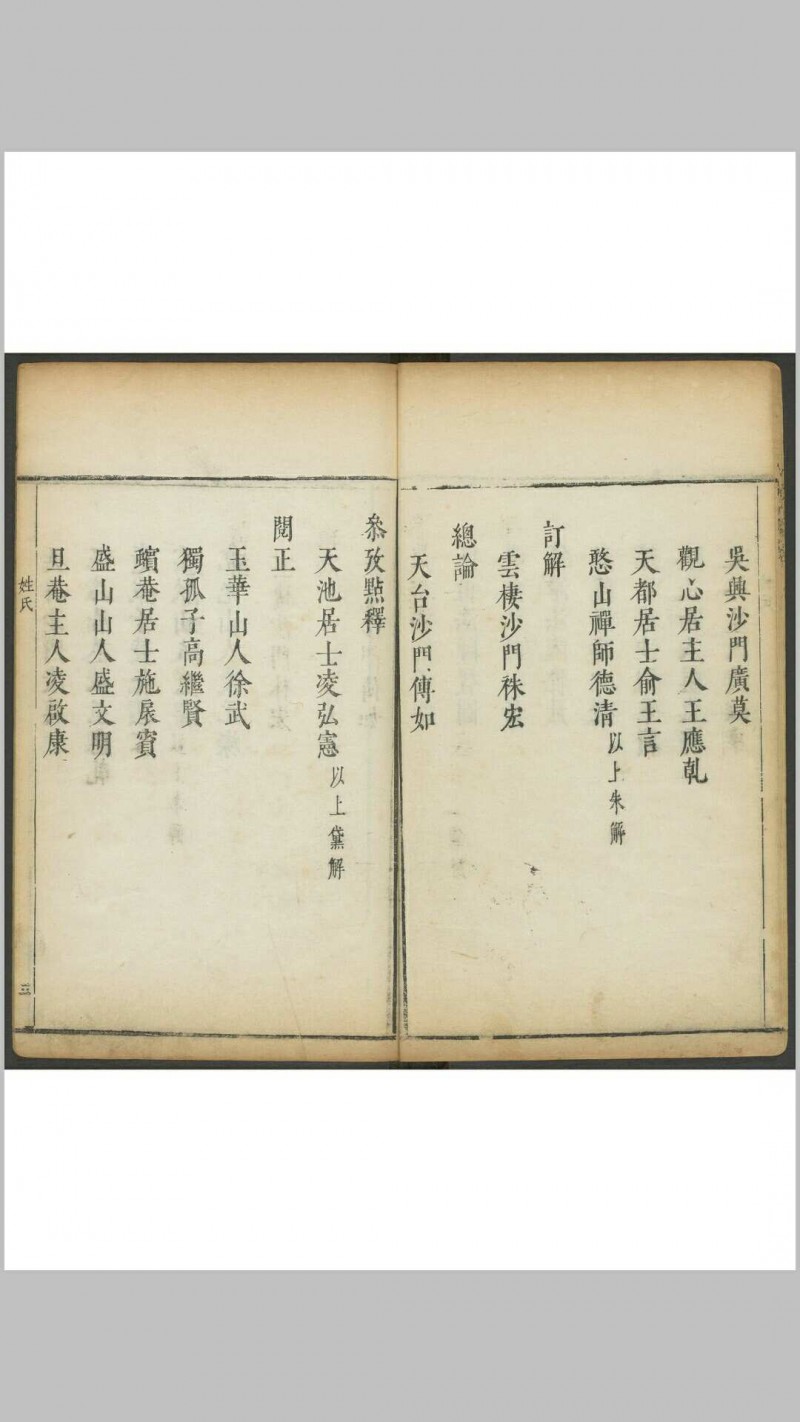 吳興沙門廣莫
觀心居主人王應乹
天都居士俞王言
憨山禪師德清以上朱解
訂解
雲棲沙門袾宏
總論
天台沙門傳如
叅攷㸃釋
天池居士凌弘憲以上黛解
閱正
玉華山人徐武
獨孤子高繼賢
蠙菴居士施扆賓
盛山山人盛文明
旦菴主人凌啟康
姓氏
三